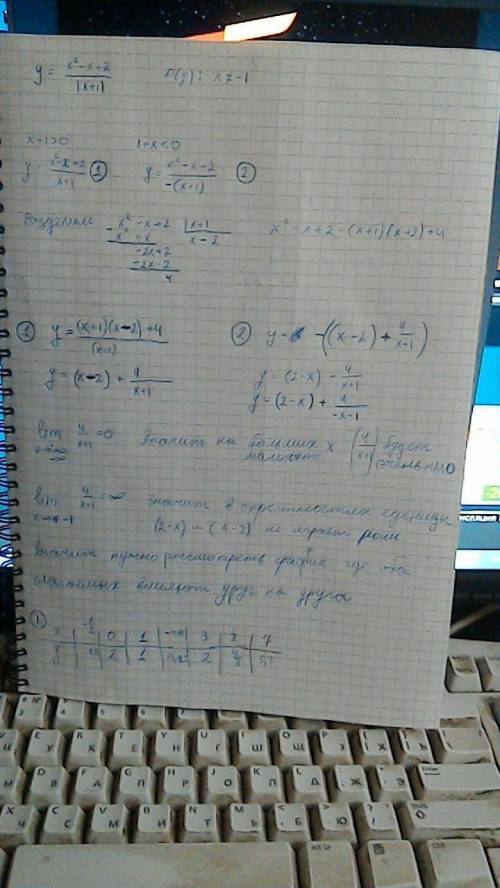 y = (x²-x+2)/|x+1|   D(y): x≠-1
x+1>0   1+x<0
y = (x²-x+2)/(x+1) ①   y = (x²-x+2)/(-(x+1)) ②
Разделим   x²-x+2 | x+1   x²-x+2=(x+1)(x+2)+4
x²+x   x-2
-2x+2
-2x-2
4
① y = ((x+1)(x-2)+4)/(x+1)   ② y = -((x-2)+4/(x+1))
y = (x-2)+4/(x+1)   y = (2-x) - 4/(x+1)
y = (2-x)+4/(-x-1)
lim 4/(x+1) = 0 Значит на больших x (4/(x+1)) будет
lim 4/(x+1) = ∞ Значит в окрестностях единицы
x→-1   (2-x) и (x-2) не играет роли
Значит нужно рассмотреть график где оба
слагаемых влияют друг на друга
①
x | -1/2 | 0 | 1 | 3 | 2 | 7
y | 2 | 1 | 2 | 4/3 | 5,5